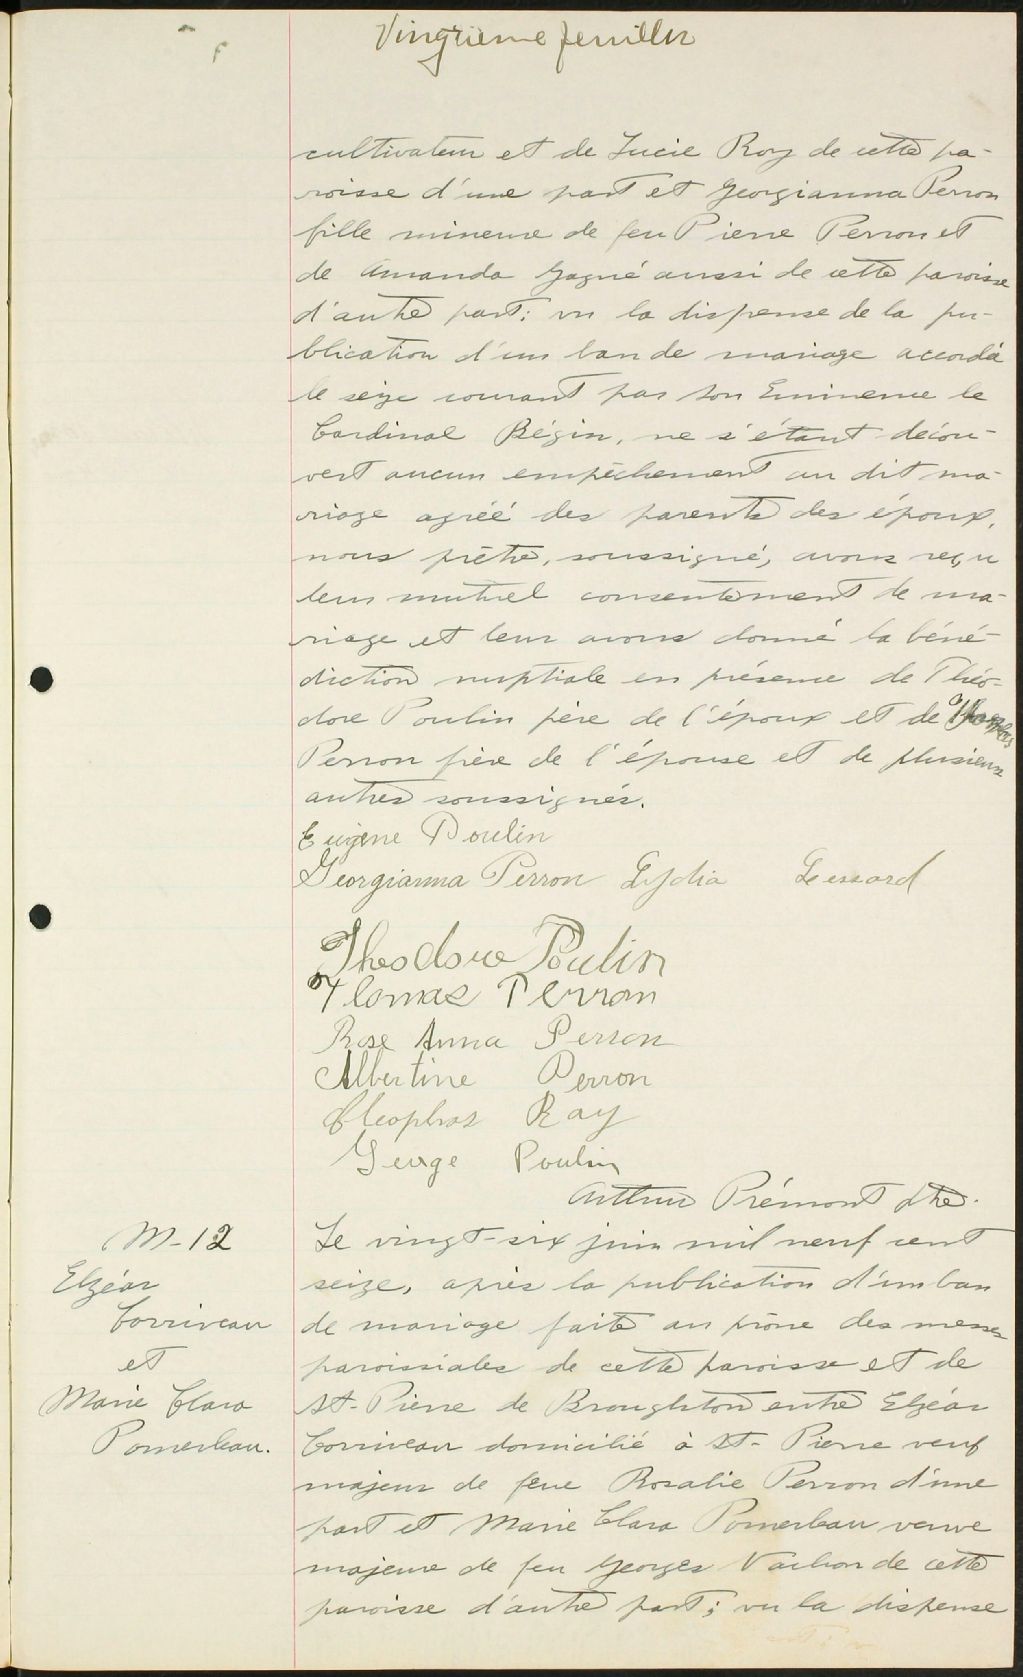 Vingtième feuillet
cultivateur et de Lucie Roy de cette pa-
roisse d'une part et Georgianna Perron
fille mineure de feu Pierre Perron et
de Amanda Gagné aussi de cette paroisse
d'autre part; vu la dispense de la pu-
blication d'un ban de mariage accordée
le seize courant par Son Eminence le
Cardinal Bégin, ne s'étant décou-
vert aucun empêchement au dit ma-
riage agréé des parents des époux,
nous prêtre, soussigné, avons reçu
leur mutuel consentement de ma-
riage et leur avons donné la béné-
diction nuptiale en présence de Théo-
dore Poulin père de l'époux et de Thomas
Perron frère de l'épouse et de plusieurs
autres soussignés.
Eugène Poulin
Georgianna Perron Lydia Lessard
Theodore Poulin
Thomas Perron
Rose Anna Perron
Albertine Perron
Cleophas Ray
George Poulin
Arthur Prémont ptre.
M-12
Elzéar
Corriveau
et
Marie Clara
Pomerleau.
Le vingt-six juin mil neuf cent
seize, après la publication d'un ban
de mariage faite au prône des messes
paroissiales de cette paroisse et de
St-Pierre de Broughton entre Elzéar
Corriveau domicilié à St-Pierre veuf
majeur de feue Rosalie Perron d'une
part et Marie Clara Pomerleau veuve
majeure de feu Georges Vachon de cette
paroisse d'autre part; vu la dispense